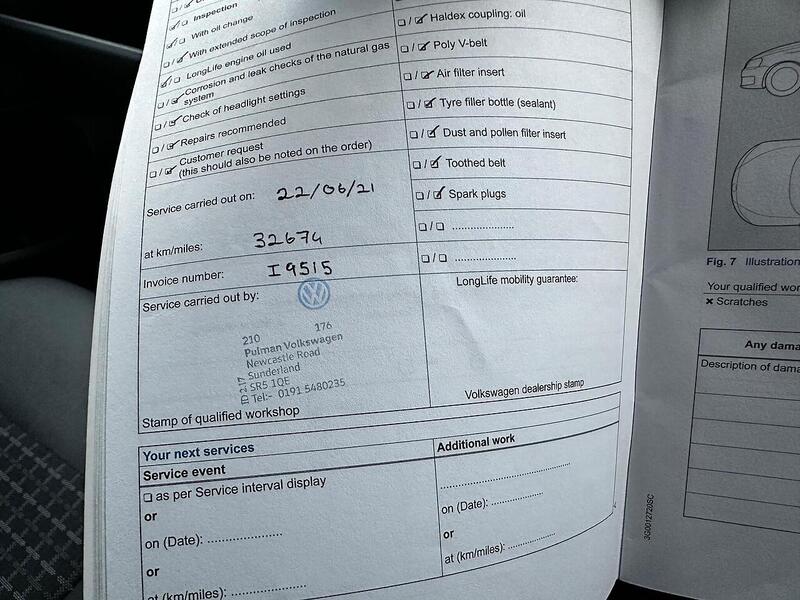 Inspection
With oil change
With extended scope of inspection
LongLife engine oil used
Corrosion and leak checks of the natural gas
system
Check of headlight settings
Repairs recommended
Customer request
(this should also be noted on the order)
Service carried out on: 22/06/21
at km/miles: 32674
Invoice number: I9515
Service carried out by:
210 176
Pulman Volkswagen
Newcastle Road
Sunderland
SR5 1QE
Tel:- 0191 5480235
Stamp of qualified workshop
Haldex coupling: oil
Poly V-belt
Air filter insert
Tyre filler bottle (sealant)
Dust and pollen filter insert
Toothed belt
Spark plugs
....................
....................
LongLife mobility guarantee:
Volkswagen dealership stamp
Your next services
Service event
as per Service interval display
or
on (Date): ....................
or
at (km/miles): ....................
Additional work
....................
on (Date): ....................
or
at (km/miles): ....................
3G0012720SC
Fig. 7 Illustration
Your qualified wor
× Scratches
Any dama
Description of dama